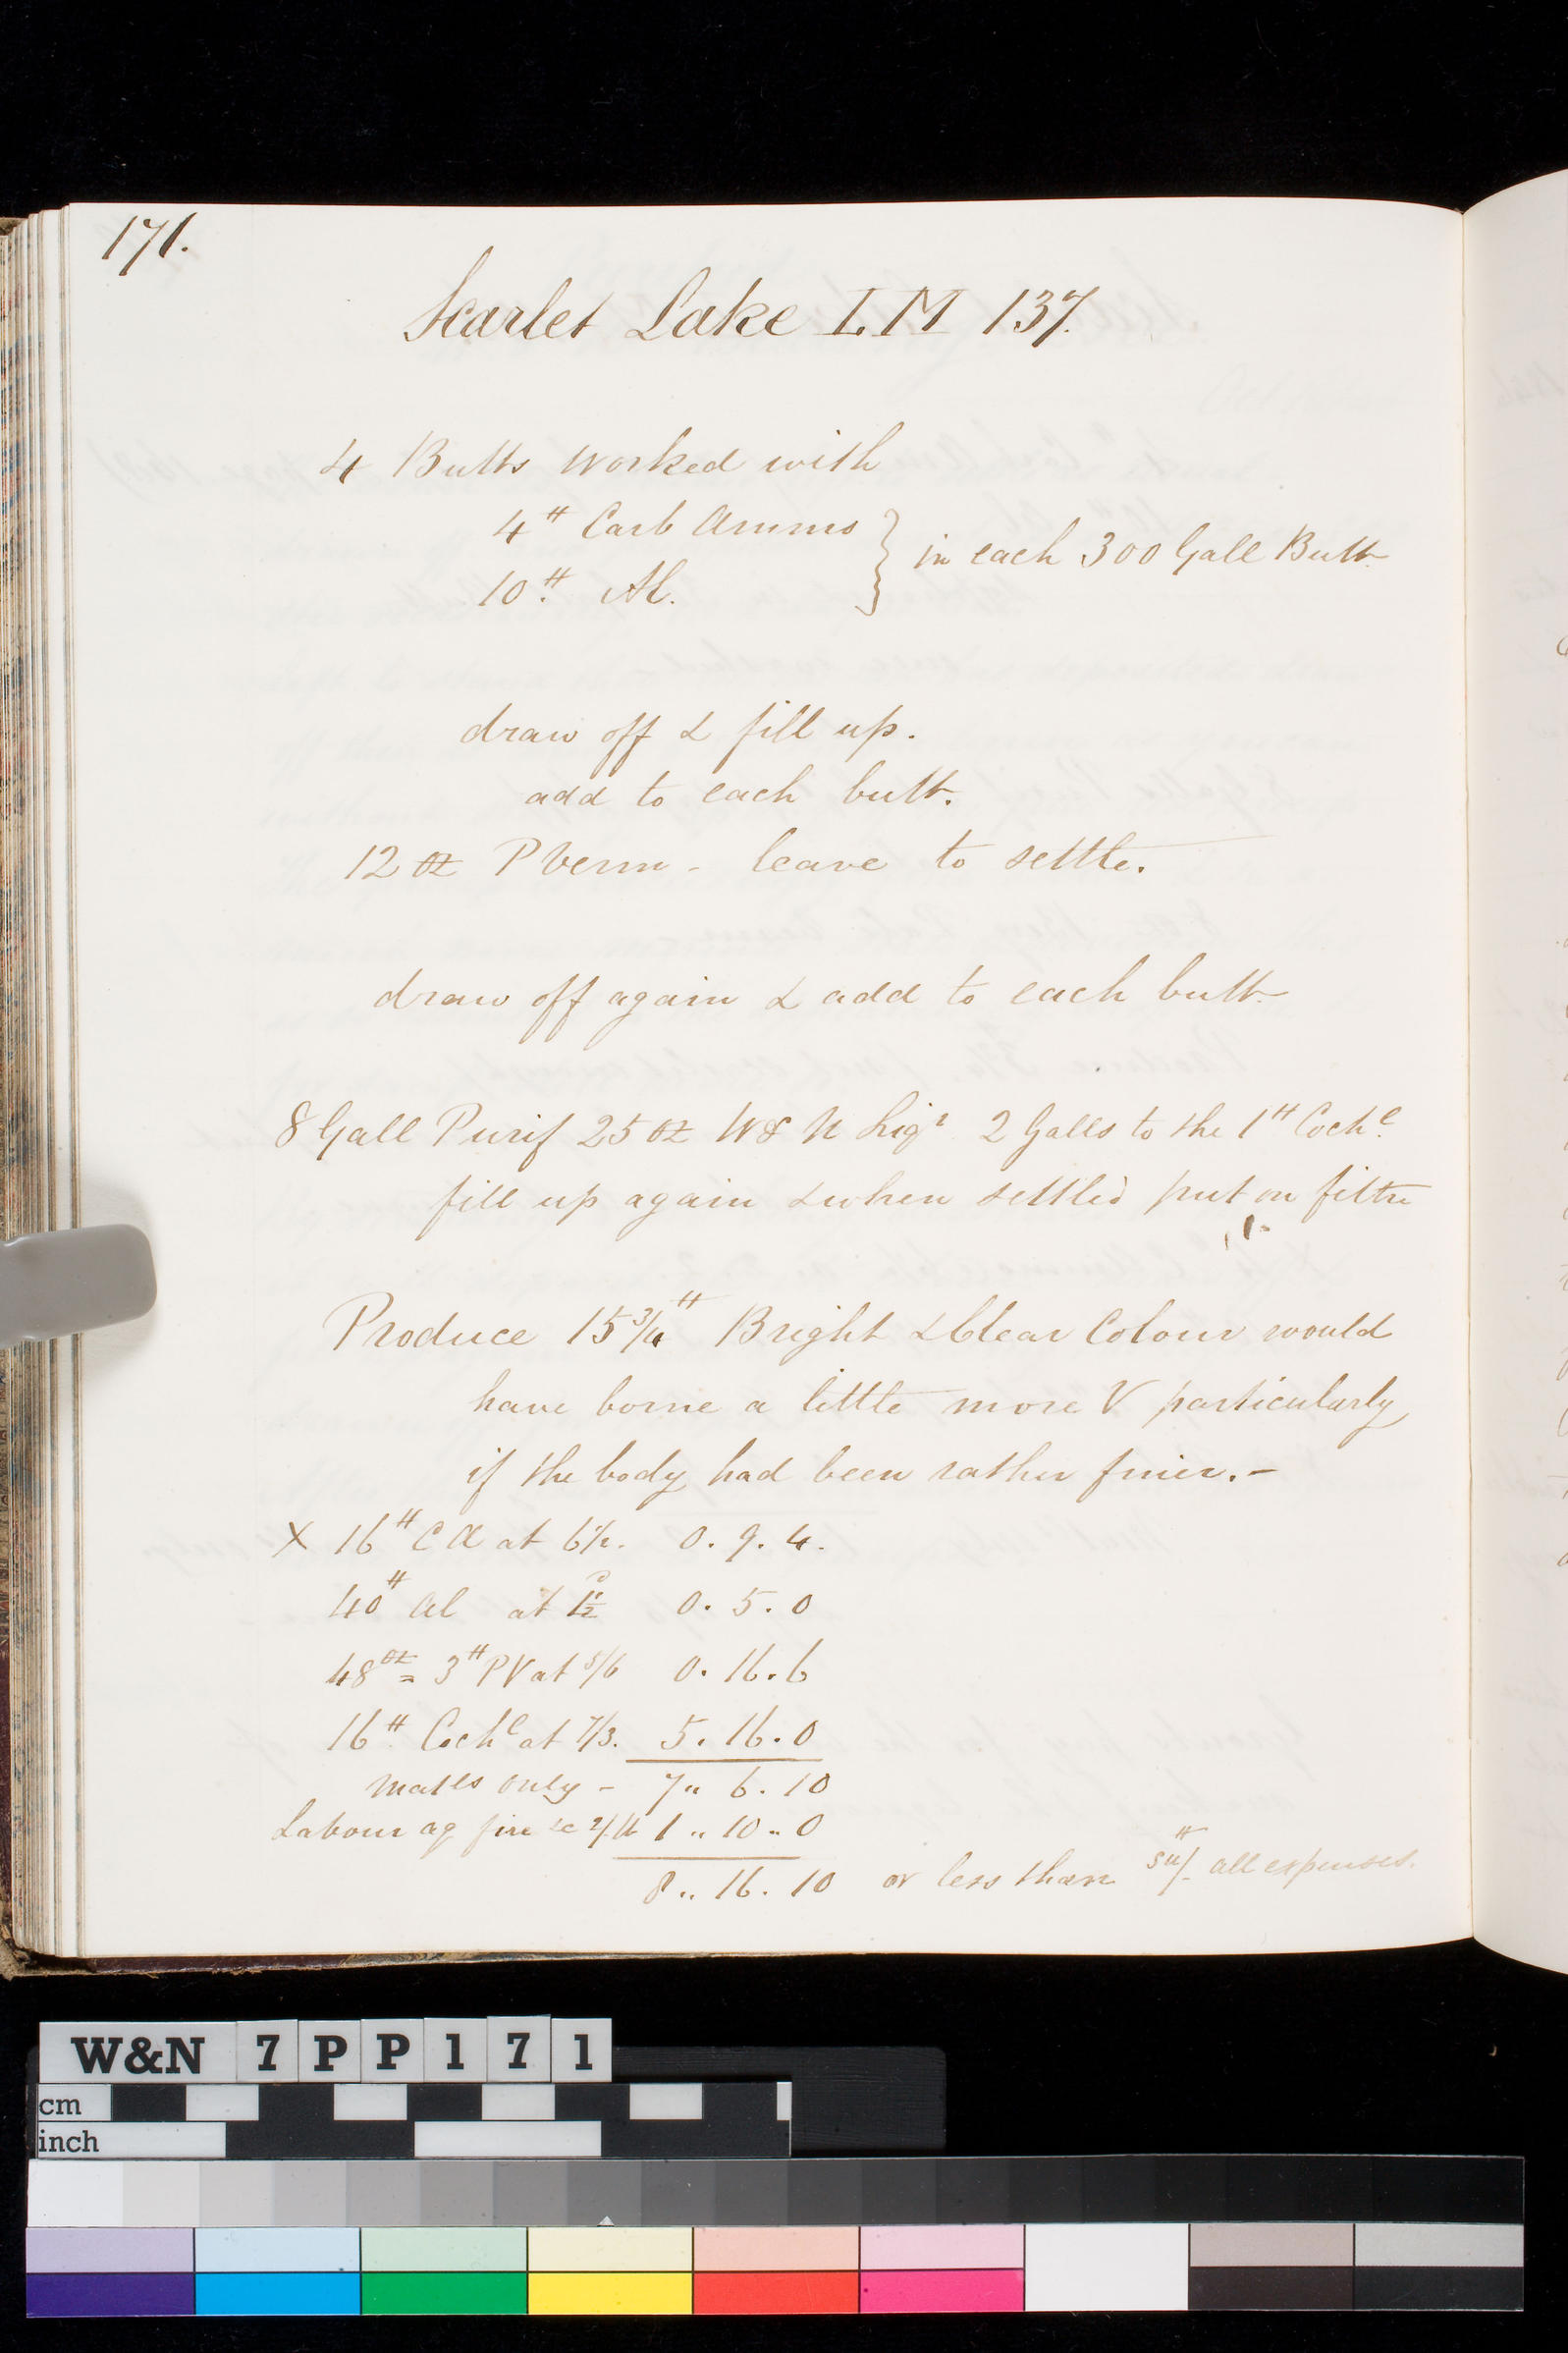 171.
Scarlet Lake I.M 137.
4 Butts Worked with
4 lb Carb Ammo } in each 300 Gall Butt
10 lb Al.
draw off & fill up.
add to each butt.
12 oz P Verm - leave to settle.
draw off again & add to each butt
8 Gall Purif 25 oz W & N Liqr 2 Galls to the 1 lb Cochl.
fill up again & when settled put on filtre
Produce 15 3/4 lb Bright & Clear Colour would
have borne a little more V particularly
if the body had been rather finer. -
X 16 lb C A at 6 1/2. 0. 9. 4.
40 lb Al at 1 1/2 0. 5. 0
48 oz = 3 lb PV at 5/6 0. 16. 6
16 lb Cochl at 7/3. 5. 16. 0
Matls only - 7 " 6. 10
Labour ag fire &c 2/ lb 1 " 10 " 0
8 " 16. 10 or less than lb all expenses.
W&N 7 P P 1 7 1
cm
inch